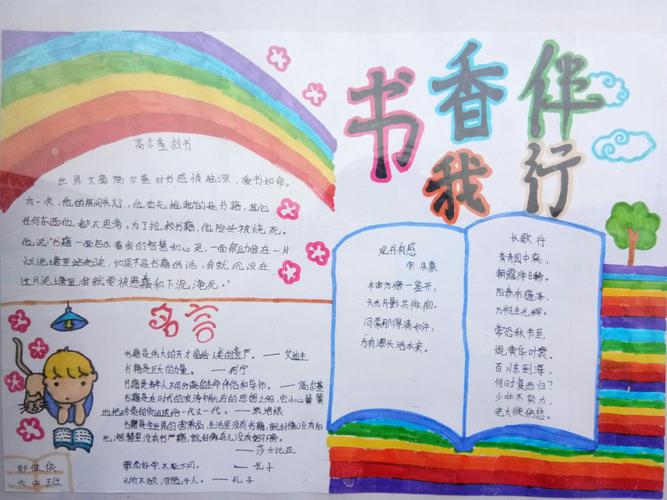 书香伴
我行
高尔基救书
世界文豪高尔基对书感情独深，爱书如命。
有一次，他的房间失火了，他首先抱起的是书籍，其他
任何东西他都不思考。为了抢救书籍，他险些被烧死。
他说："书籍一面启示着我的智慧和心灵，一面帮助我在一片
烂泥塘里站起来，如果不是书籍的话，我就沉没在
这片泥塘里，我就要被愚蠢和下流淹死。"
名言
书籍是伟大的天才留给人类的遗产。——艾迪生
书籍是巨大的力量。——列宁
书籍是青年人不可分离的生命伴侣和导师。——高尔基
书籍是在时代的波涛中航行的思想之船，它小心翼翼
地把珍贵的货物运送给一代又一代。——培根
书籍是全世界的营养品，生活里没有书籍，就好像没有阳
光；智慧里没有书籍，就好像鸟儿没有翅膀。
——莎士比亚
敏而好学，不耻下问。——孔子
学而不厌，诲人不倦。——孔子
六
班
观书有感
宋 朱熹
半亩方塘一鉴开，
天光
共徘徊。
问渠那得清如许，
为有源头活水来。
长歌行
青青园中葵，
朝露待日晞。
阳春布德泽，
万物生光辉。
常恐秋节至，
焜黄华叶衰。
百川东到海，
何时复西归？
少壮不努力，
老大徒伤悲。